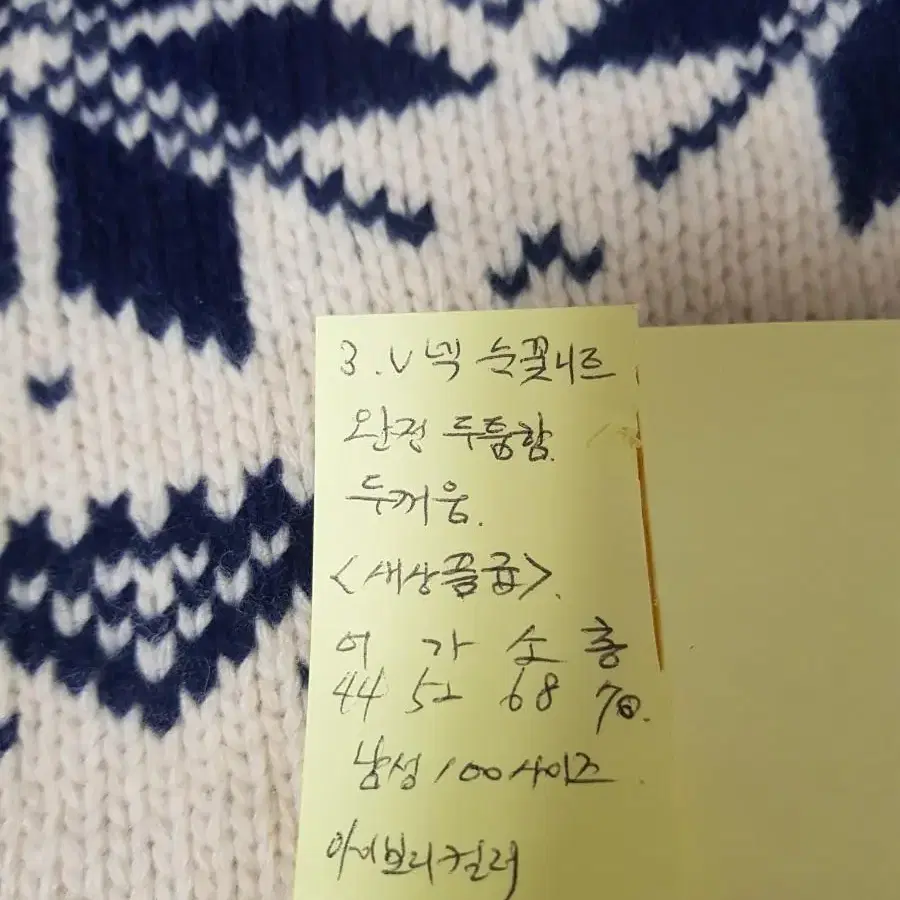 3. V넥 순꽃니트
완전 두툼함.
두꺼움.
<새상품급>.
어 가 소 총
44 52 68 70.
남성 100사이즈.
아이보리컬러